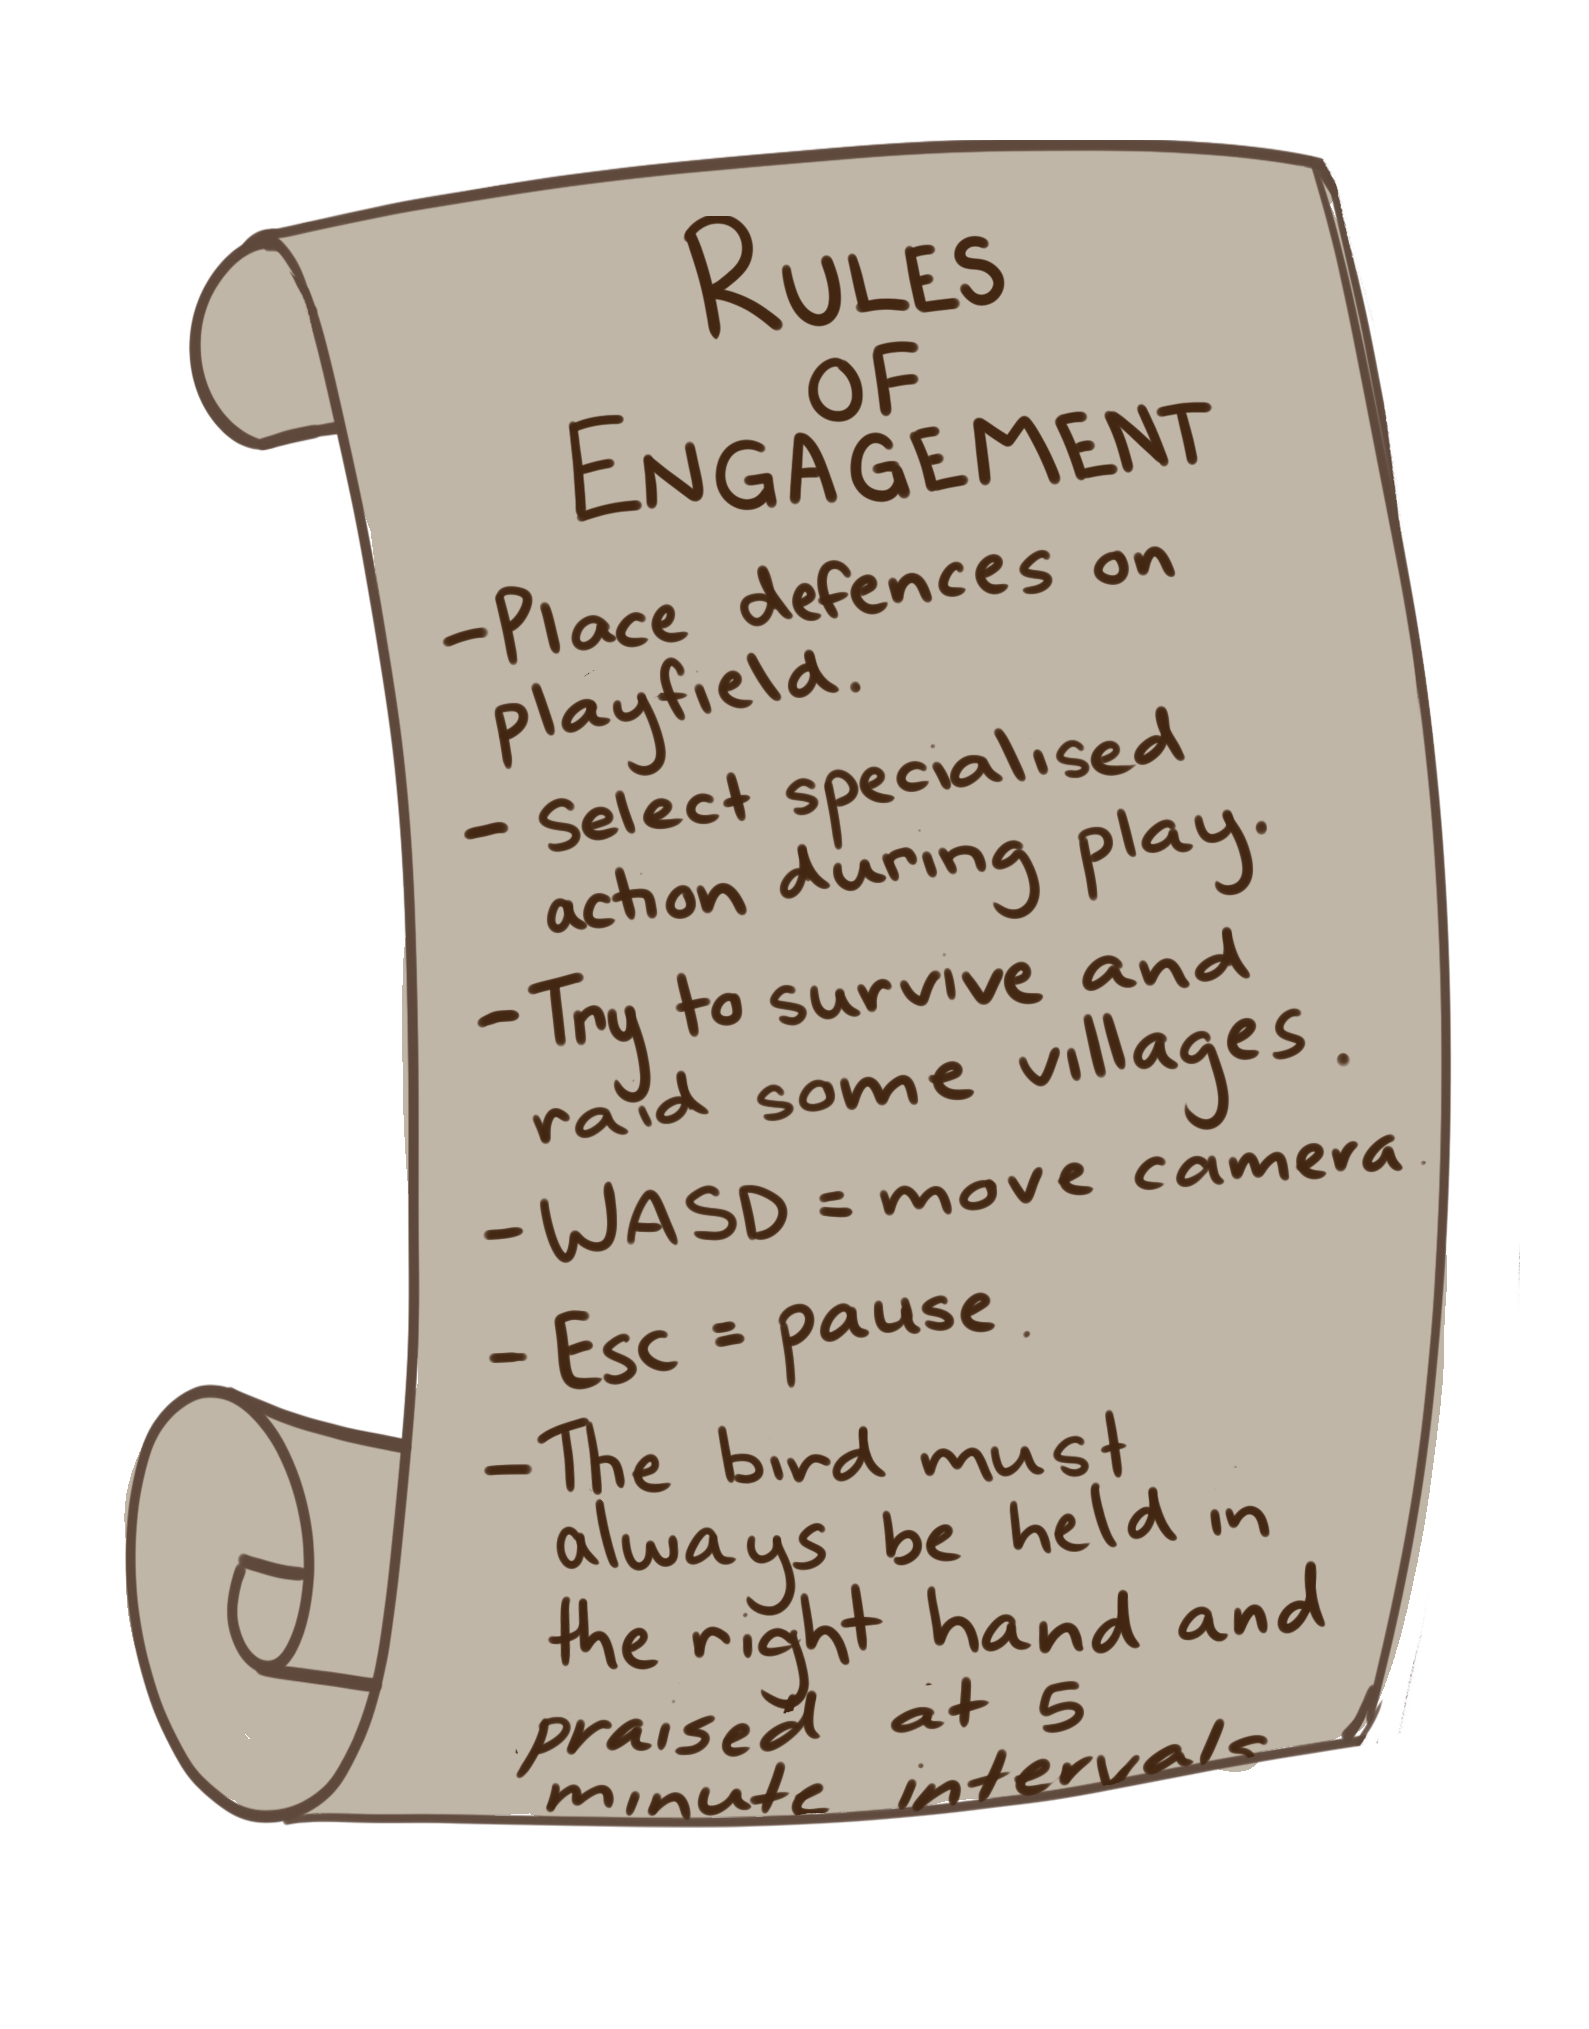 RULES
OF
ENGAGEMENT
- Place defences on
playfield.
- Select specialised
action during play.
- Try to survive and
raid some villages.
- WASD = move camera.
- Esc = pause.
- The bird must
always be held in
the right hand and
praised at 5
minute intervals